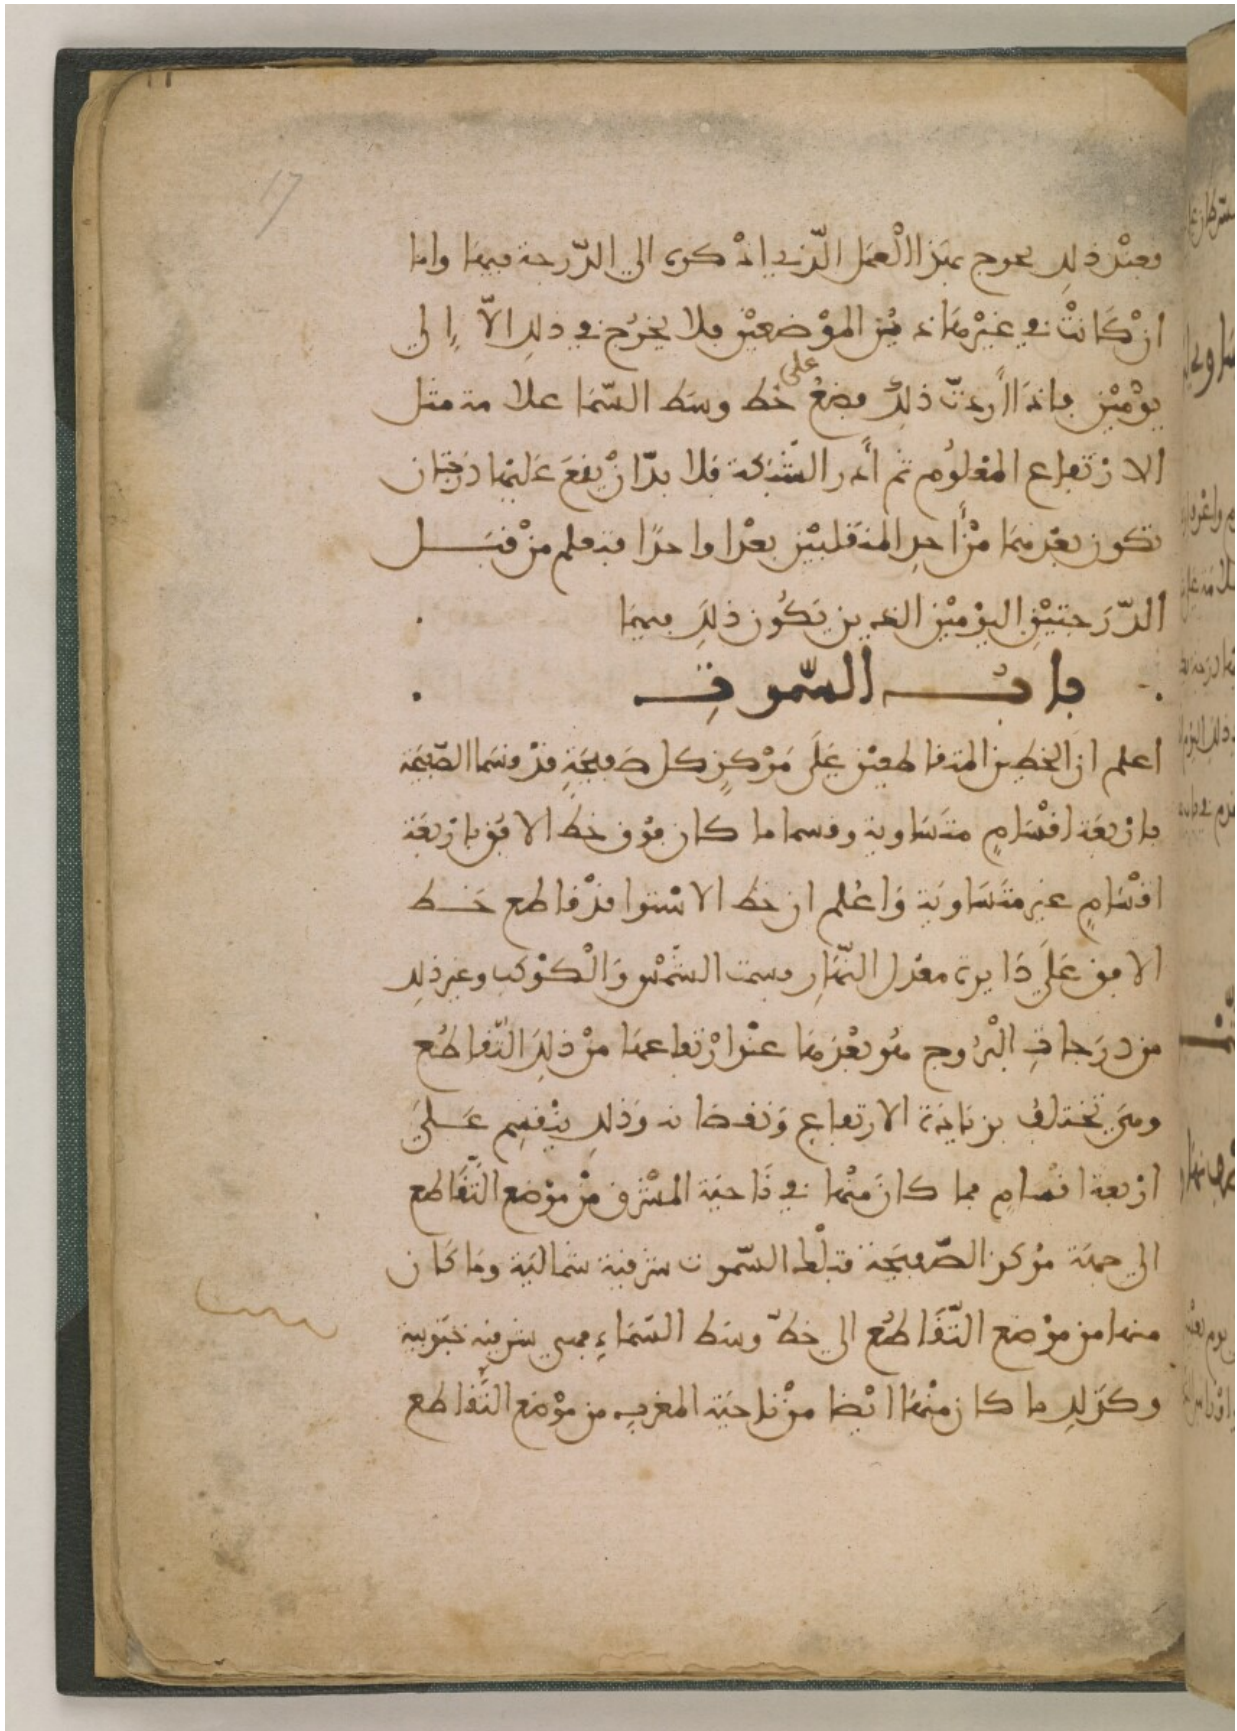 17
فعند ذلك يخرج بهذا العمل الذي اذكره الي الدّرجة فيها واما
ان كَانتْ في غيرهاذين الموْضعيْن فلا يخرُج في ذلك الاّ إلي
يوْميْن فاذا أردتّ ذلك فضعْ على خط وسط السّما علامة مثل
الارتفاع المعْلوُم ثم أدر الشبكة فلا بدّ انْ يقعَ عَليْها درَجتان
تكون بعْدهما منْ أحدِ المنقلبيْن بعْدا واحدًا فتعلم منْ قبَل
الدّرَجتيْنِ اليوْميْن الذين يَكُون ذلكَ فيهما
بابُ السّموتِ
اعلم انّ الخطين المتقاطعيْن عَلَى مَرْكزِ كل صَفيحَةٍ قدْ قسَما الصّفيحَة
بارْبعَة اقْسَامٍ متَسَاوية وقسما ما كان فوْق خط الافق بارْبعَة
اقسَامٍ غير متَسَاويَة وَاعْلم ان خط الاسْتوا قدْ قاطع خَط
الافق عَلَي دَايرة معْدل النّهَارِ فسمت الشمْس وَالْكوْكب وغير ذلك
من درَجاتِ الْبرُوج هُو بعْدهَا عنْد ارْتفاعها منْ ذلكَ التّقاطُع
وهيَ تختلفُ بزيادة الارتفاع وَنقصَانه وَذلك ينْقسِم عَلَيَ
ارْبعة اقْسامٍ فما كانَ منْها في نَاحيَة المشْرق منْ موْضع التّقَاطع
الي جهَة مرْكز الصّفيحَة فتلْك السّموت شرقية شماليَة ومَا كَان
منها من موْضع التّقَاطُع الي خطّ وسَط السّمَاءِ فهي شرقية جَنوبية
وكذلك ما كان منْهَا ايْضا منْ ناحيَة المغربِ من موْضع التّقاطع